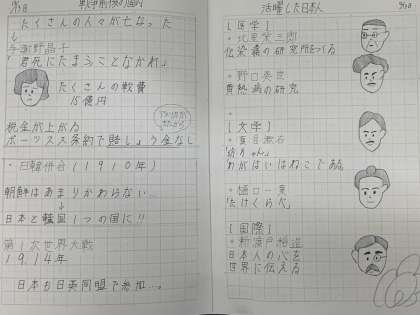 戦争前後の国内
たくさんの人々が亡なった
↓
与謝野晶子
「君死にたまふことなかれ」
たくさんの軍費
15億円
税金が上がる
ポーツスス条約で賠しょう金なし
・日韓併合(1910年)
朝鮮はあまりかわらない…
↓
日本と韓国1つの国に!!
第1次世界大戦
1914年
日本も日英同盟で参加…。
活躍した日本人
[医学]
・北里柴三郎
伝染病の研究所をつくる
・野口英世
黄熱病の研究
[文学]
・夏目漱石
「坊っちゃん」
「わがはいはねこである
・樋口一葉
「たけくらべ」
[国際]
・新渡戸稲造
日本人の心を
世界に伝える